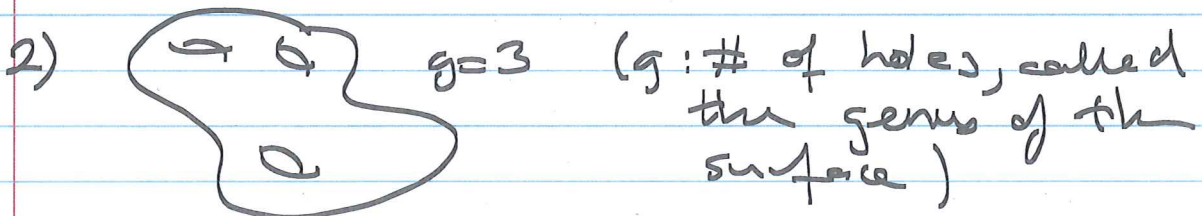 2) g=3 (g: # of holes, called
the genus of the
surface)